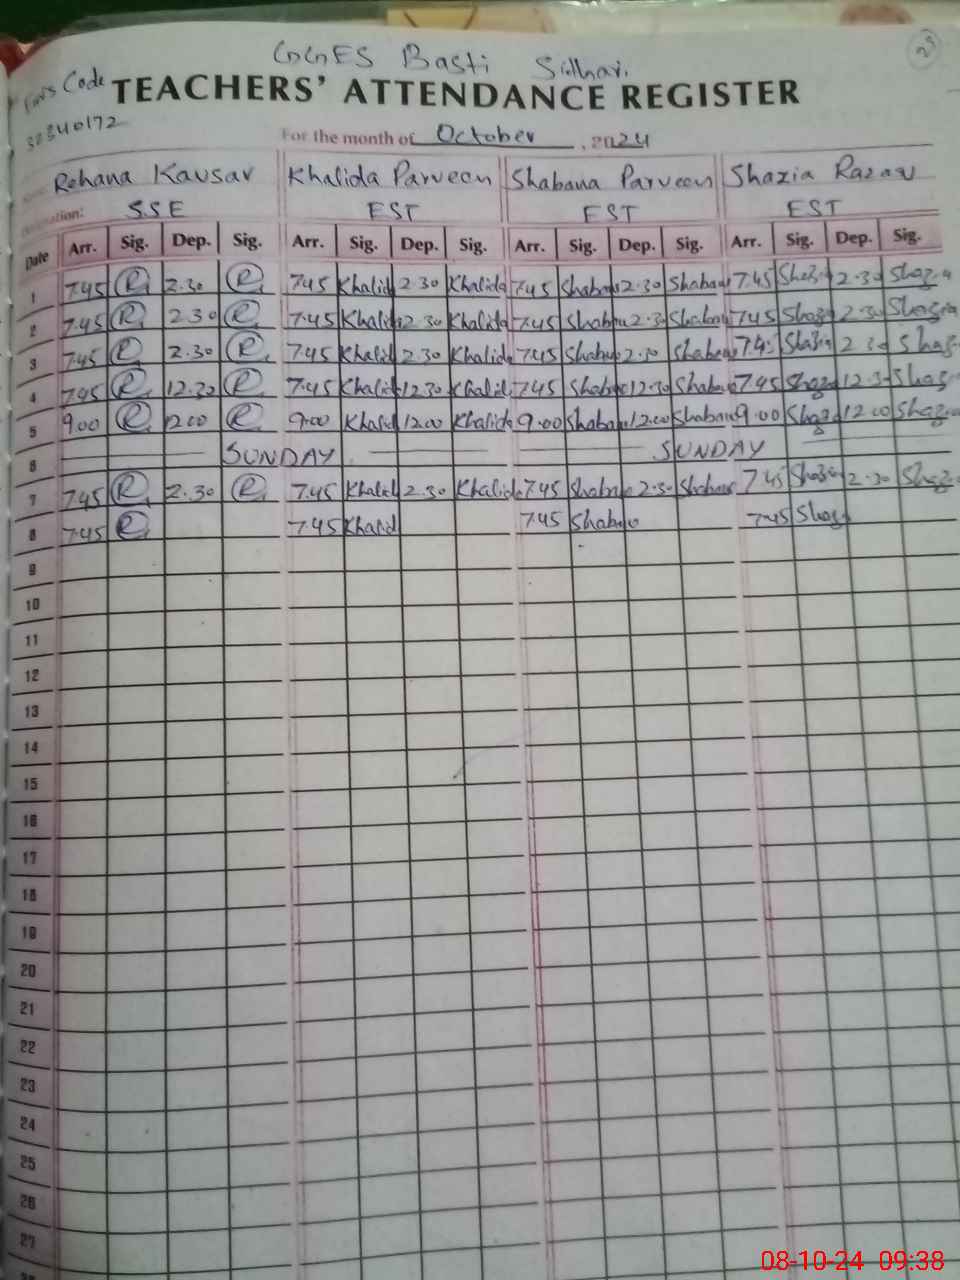 GGES Basti Sidhari
Code
TEACHERS' ATTENDANCE REGISTER
32340172
For the month of October, 2024
Rehana Kausar Khalida Parveen Shabana Parveen Shazia
SSE EST EST EST
Date Arr. Sig. Dep. Sig. Arr. Sig. Dep. Sig. Arr. Sig. Dep. Sig. Arr. Sig. Dep. Sig.
1 7.45 R 2.30 R 7.45 Khalid 2.30 Khalida 7.45 Shabana 2.30 Shabana 7.45 Shazia 2.30 Shazia
2 7.45 R 2.30 R 7.45 Khalid 2.30 Khalida 7.45 Shabana 2.30 Shabana 7.45 Shazia 2.30 Shazia
3 7.45 R 2.30 R 7.45 Khalid 2.30 Khalida 7.45 Shabana 2.30 Shabana 7.45 Shazia 2.30 Shaz
4 7.45 R 12.30 R 7.45 Khalid 12.30 Khalid 7.45 Shabana 12.30 Shabana 7.45 Shaz 12.30 Shaz
5 9.00 R 12.00 R 9.00 Khalid 12.00 Khalida 9.00 Shabana 12.00 Shabana 9.00 Shaz 12.00 Shaz
6 SUNDAY SUNDAY
7 7.45 R 2.30 R 7.45 Khalid 2.30 Khalida 7.45 Shabana 2.30 Shabana 7.45 Shazia 2.30 Shaz
8 7.45 R 7.45 Khalid 7.45 Shabana 7.45 Shaz
9
10
11
12
13
14
15
16
17
18
19
20
21
22
23
24
25
26
27
08-10-24 09:38